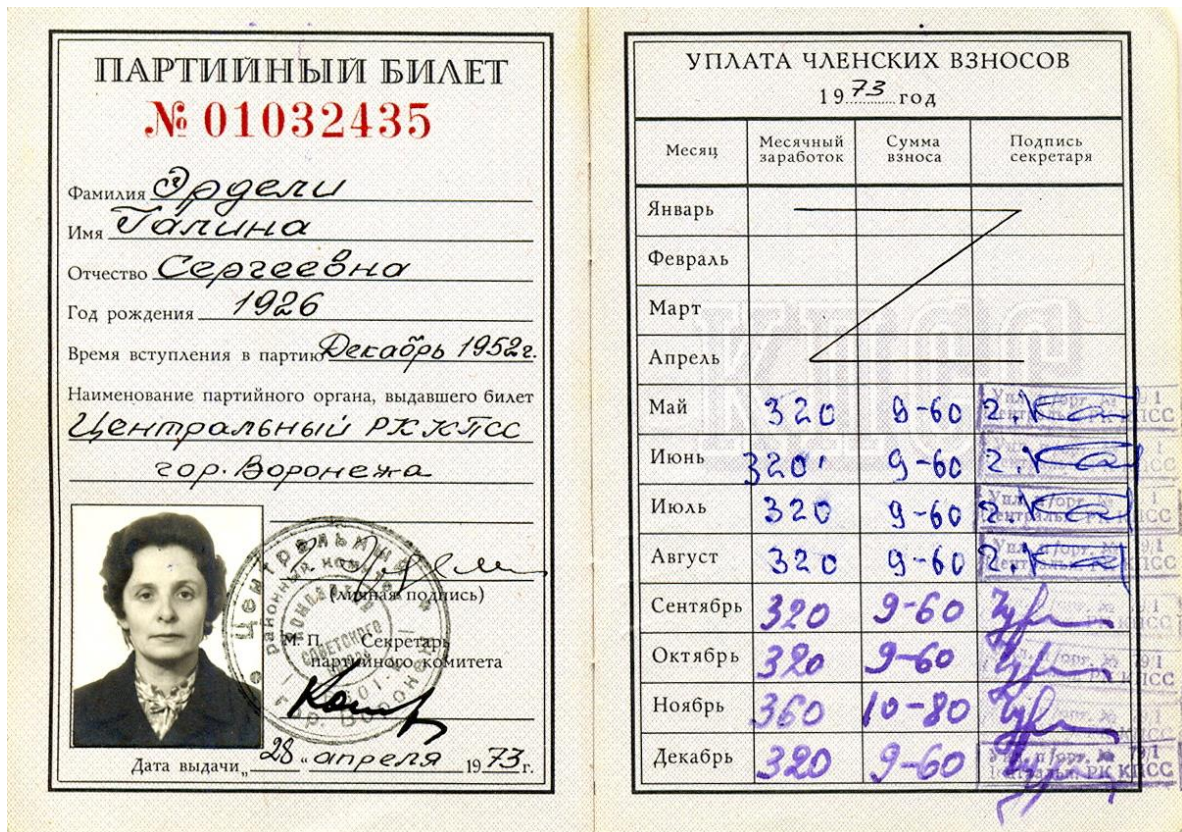 ПАРТИЙНЫЙ БИЛЕТ
№ 01032435
Фамилия Эрдели
Имя Галина
Отчество Сергеевна
Год рождения 1926
Время вступления в партию Декабрь 1952 г.
Наименование партийного органа, выдавшего билет
Центральный РК КПСС
гор. Воронежа
(личная подпись)
М. П. Секретарь
партийного комитета
Дата выдачи „28“ апреля 1973 г.
УПЛАТА ЧЛЕНСКИХ ВЗНОСОВ
1973 год
Месяц Месячный заработок Сумма взноса Подпись секретаря
Январь
Февраль
Март
Апрель
Май 320 9-60
Июнь 320 9-60
Июль 320 9-60
Август 320 9-60
Сентябрь 320 9-60
Октябрь 320 9-60
Ноябрь 360 10-80
Декабрь 320 9-60
КПСС